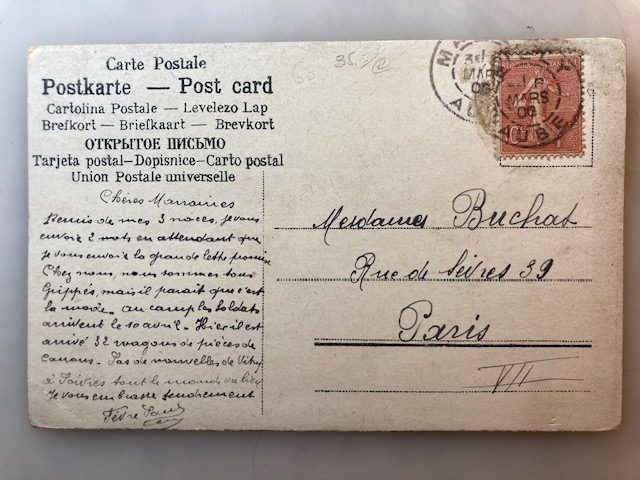 Carte Postale
Postkarte — Post card
Cartolina Postale — Levelezo Lap
Brefkort — Briefkaart — Brevkort
ОТКРЫТОЕ ПИСЬМО
Tarjeta postal—Dopisnice—Carto postal
Union Postale universelle
Chères Marraines
Remis de mes 3 noces, je vous
envoie 2 mots en attendant que
je vous envoie la grande lettre promise
Chez nous, nous sommes tous
Grippés, mais il parait que c'est
la mode. au camp les soldats
arrivent le 10 avril. Hier il est
arrivé 32 wagons de pièces de
canons. Pas de nouvelles de Vitry
à Poivres tout le monde va bien
Je vous embrasse tendrement
Fèvre
Mesdames Buchat
Rue de Sèvres 39
Paris
VII
MARS
06
MARS
06
AUBE
10